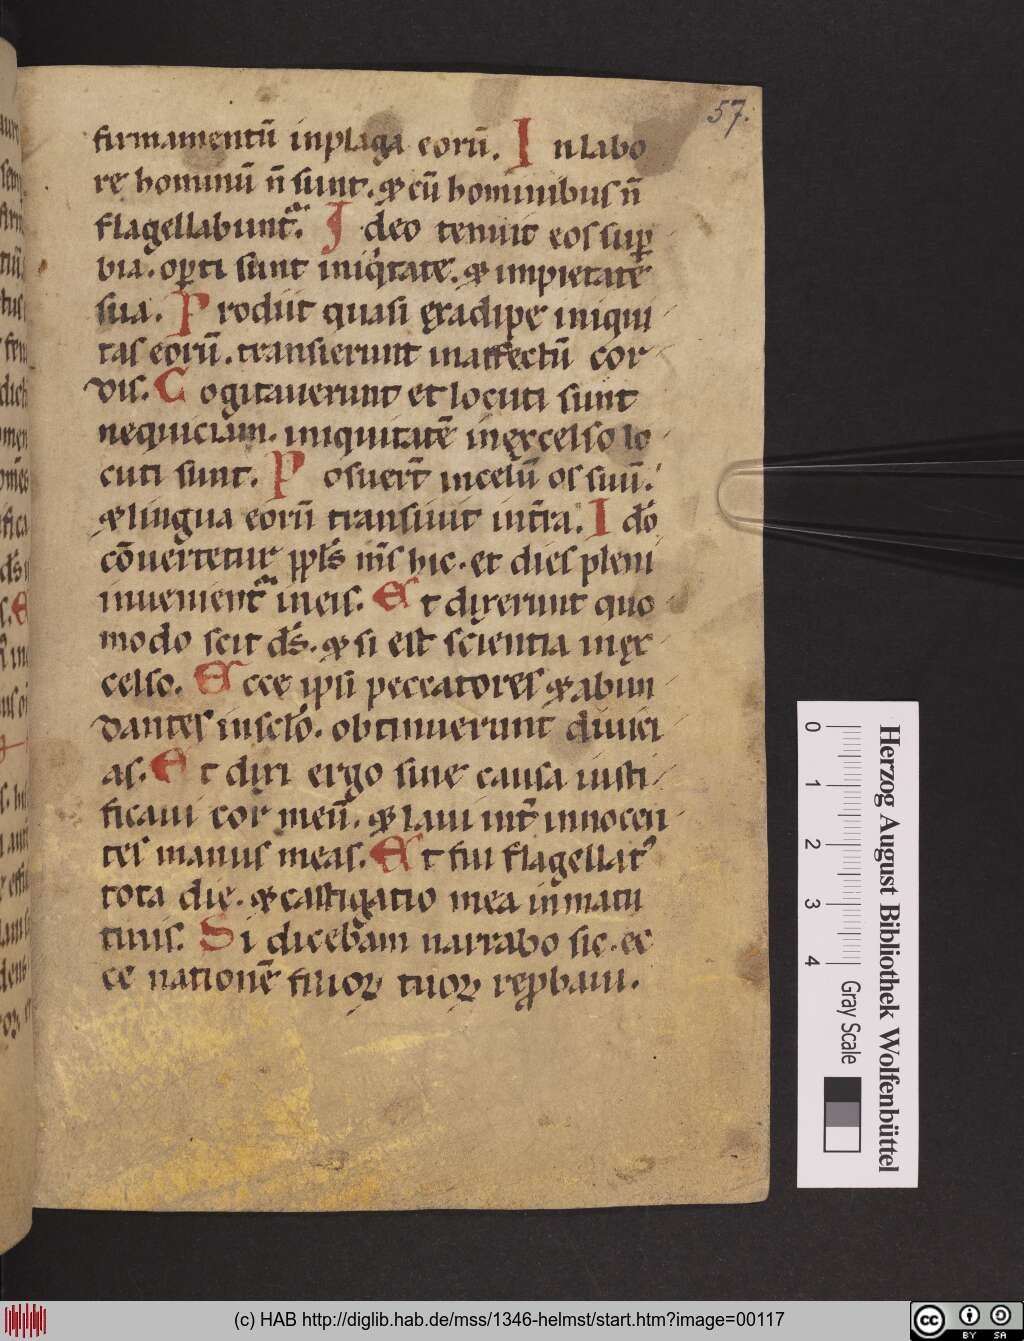 57.
firmamentū inplaga eorū. In labo
re hominū n̄ sunt. ⁊ cū hominibus n̄
flagellabunt᷑. Ideo tenuit eos suꝑ
bia. oꝑti sunt iniqͥtate. ⁊ impietate
sua. Prodiit quasi exadipe iniqui
tas eorū. transierunt inaffectū cor
dis. Cogitauerunt et locuti sunt
nequiciam. iniquitatē inexcelso lo
cuti sunt. Posuerт̄ incelū os suū.
⁊ lingua eorū transiuit int̄ra. Idō
cōuertetur ppl̄s m̄s hic. et dies pleni
inuenient᷑ ineis. Et dixerunt quo
modo scit ds̄. ⁊ si est scientia inex
celso. Ecce ipsi peccatores ⁊ abun
dantes insclō. obtinuerunt diuici
as. Et dixi ergo sine causa iusti
ficaui cor meū. ⁊ laui int̄ innocen
tes manus meas. Et fui flagellatꝰ
tota die. ⁊ castigatio mea inmatu
tinis. Si dicebam narrabo sic. ec
ce nationē filioꝝ tuoꝝ reꝓbaui.
0 1 2 3 4
Gray Scale
Herzog August Bibliothek Wolfenbüttel
(c) HAB http://diglib.hab.de/mss/1346-helmst/start.htm?image=00117
cc BY SA